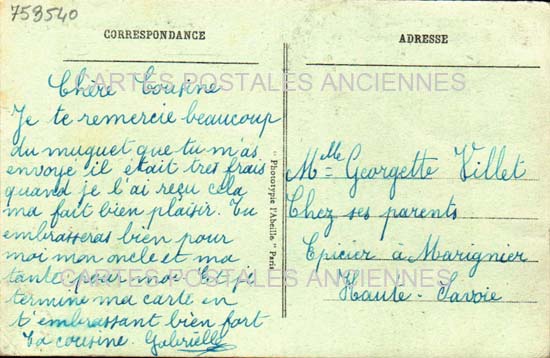 759540
CORRESPONDANCE
ADRESSE
CARTES POSTALES ANCIENNES
Chère Cousine
Je te remercie beaucoup
du muguet que tu m'as
envoyé il était tres frais
quand je l'ai reçu cela
ma fait bien plaisir. Tu
embrasseras bien pour
moi mon oncle et ma
tante pour moi Et je
termine ma carte en
t'embrassant bien fort
Ta cousine. Gabrielle
"Phototypie l'Abeille." Paris
Melle Georgette Villet
Chez ses parents
Epicier à Marignier
Haute-Savoie
CARTES POSTALES ANCIENNES